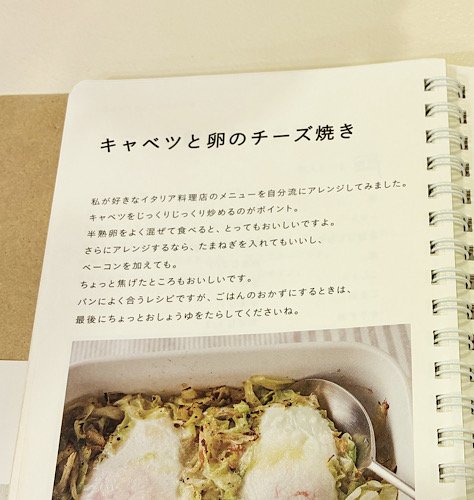 キャベツと卵のチーズ焼き
私が好きなイタリア料理店のメニューを自分流にアレンジしてみました。
キャベツをじっくりじっくり炒めるのがポイント。
半熟卵をよく混ぜて食べると、とってもおいしいですよ。
さらにアレンジするなら、たまねぎを入れてもいいし、
ベーコンを加えても。
ちょっと焦げたところもおいしいです。
パンによく合うレシピですが、ごはんのおかずにするときは、
最後にちょっとおしょうゆをたらしてくださいね。